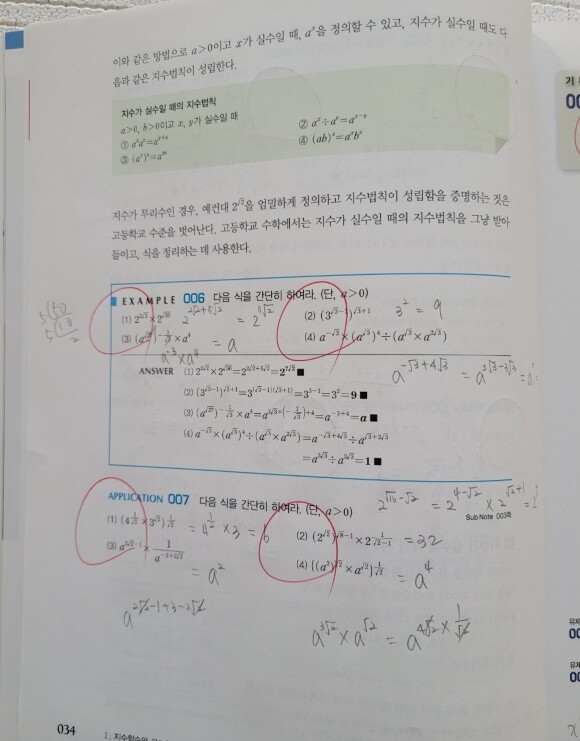 이와 같은 방법으로 a>0이고 x가 실수일 때, aˣ을 정의할 수 있고, 지수가 실수일 때도 다
음과 같은 지수법칙이 성립한다.
지수가 실수일 때의 지수법칙
a>0, b>0이고 x, y가 실수일 때
① aˣaʸ=aˣ⁺ʸ ② aˣ÷aʸ=aˣ⁻ʸ
③ (aˣ)ʸ=aˣʸ ④ (ab)ˣ=aˣbˣ
지수가 무리수인 경우, 예컨대 2^√2을 엄밀하게 정의하고 지수법칙이 성립함을 증명하는 것은
고등학교 수준을 벗어난다. 고등학교 수학에서는 지수가 실수일 때의 지수법칙을 그냥 받아
들이고, 식을 정리하는 데 사용한다.
EXAMPLE 006 다음 식을 간단히 하여라. (단, a>0)
(1) 2^(2√2)×2^√50 2^(2√2+5√2) = 2^(7√2) (2) (3^(√3-1))^(√3+1) 3² = 9
(3) (a^√27)^(-1/√3)×a⁴ = a (4) a^(-√3)×(a^√3)⁴÷(a^√3×a^(2√3))
a⁻³×a⁴
a^(-√3+4√3) = a^(3√3-3√3)
ANSWER (1) 2^(2√2)×2^√50=2^(2√2+5√2)=2^(7√2) ■
(2) (3^(√3-1))^(√3+1)=3^((√3-1)(√3+1))=3^(3-1)=3²=9 ■
(3) (a^√27)^(-1/√3)×a⁴=a^(3√3×(-1/√3)+4)=a^(-3+4)=a ■
(4) a^(-√3)×(a^√3)⁴÷(a^√3×a^(2√3))=a^(-√3+4√3)÷a^(√3+2√3)
=a^(3√3)÷a^(3√3)=1 ■
APPLICATION 007 다음 식을 간단히 하여라. (단, a>0)
2^(√16-√2) = 2^(4-√2) × 2^(√2+1)
Sub Note 003쪽
(1) (4^(1/√3)×3^(√2))^(1/√2) = 4^(1/2) × 3 = 6 (2) (2^√2)^(√8-1)×2^(1/(√2-1)) = 32
(3) a^(2√2-1)×1/a^(-3+2√2) = a² (4) {(a³)^√2×a^√2}^(1/√2) = a⁴
a^(2√2-1+3-2√2)
a^(3√2) × a^√2 = a^(4√2 × 1/√2)
034